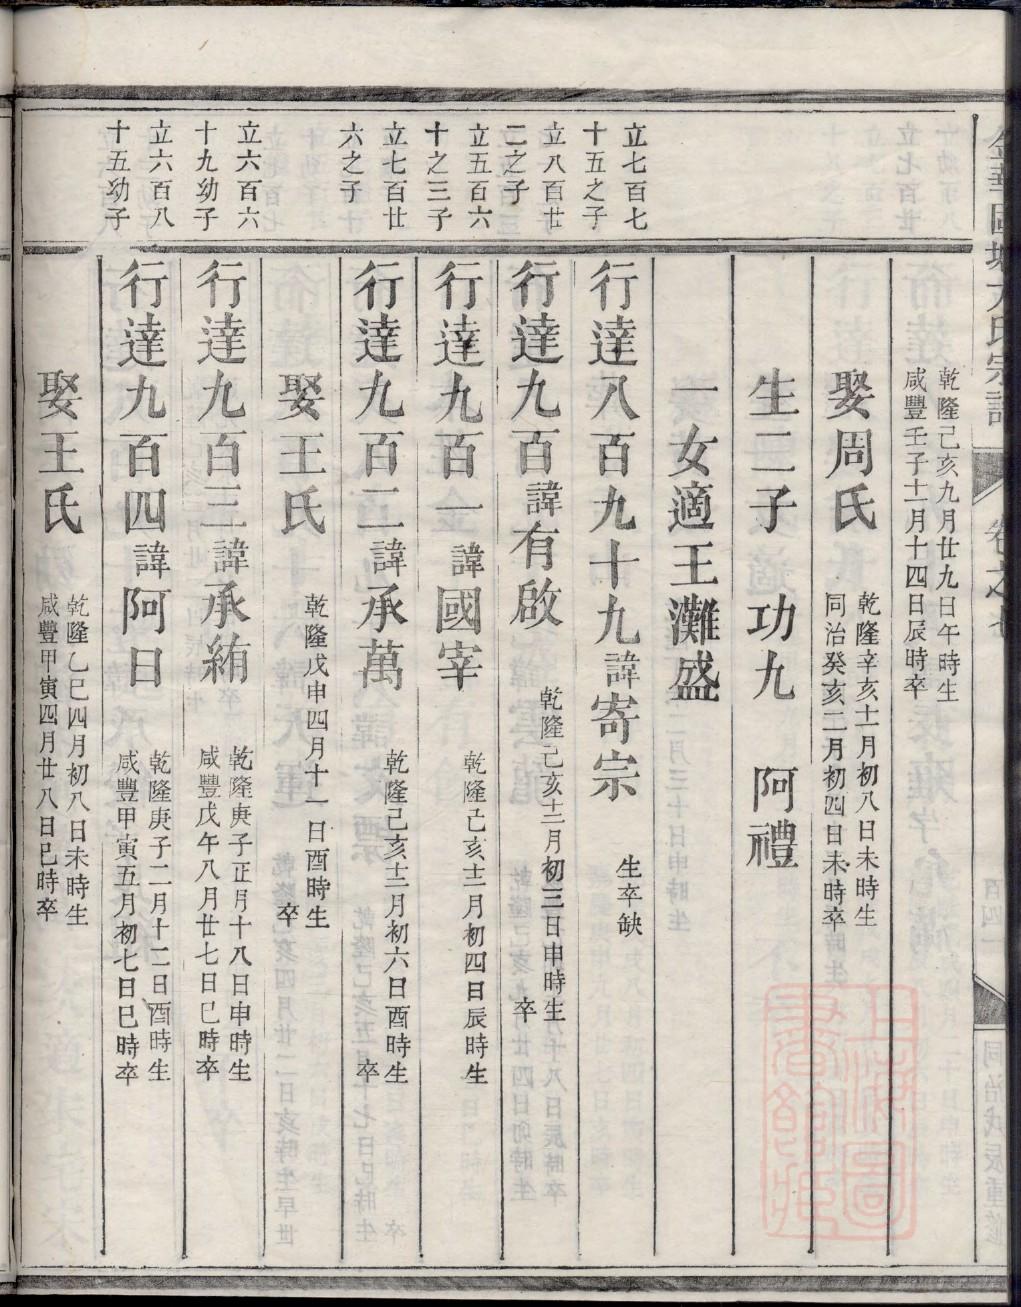 乾隆己亥九月廿九日午時生
咸豐壬子十一月十四日辰時卒
娶周氏
乾隆辛亥十一月初八日未時生
同治癸亥二月初四日未時卒
生二子 功九 阿禮
一女適王灘盛
立七百七
十五之子
行達八百九十九諱寄宗 生卒缺
立八百廿
二之子
行達九百諱有啟
乾隆己亥十二月初三日申時生
卒
立五百六
十之三子
行達九百一諱國宰
乾隆己亥十二月初四日辰時生
立七百廿
六之子
行達九百二諱承萬
乾隆己亥十二月初六日酉時生
卒
娶王氏
乾隆戊申四月十一日酉時生
卒
立六百六
十九幼子
行達九百三諱承綪
乾隆庚子正月十八日申時生
咸豐戊午八月廿七日巳時卒
立六百八
十五幼子
行達九百四諱阿日
乾隆庚子二月十二日酉時生
咸豐甲寅五月初七日巳時卒
娶王氏
乾隆乙巳四月初八日未時生
咸豐甲寅四月廿八日巳時卒